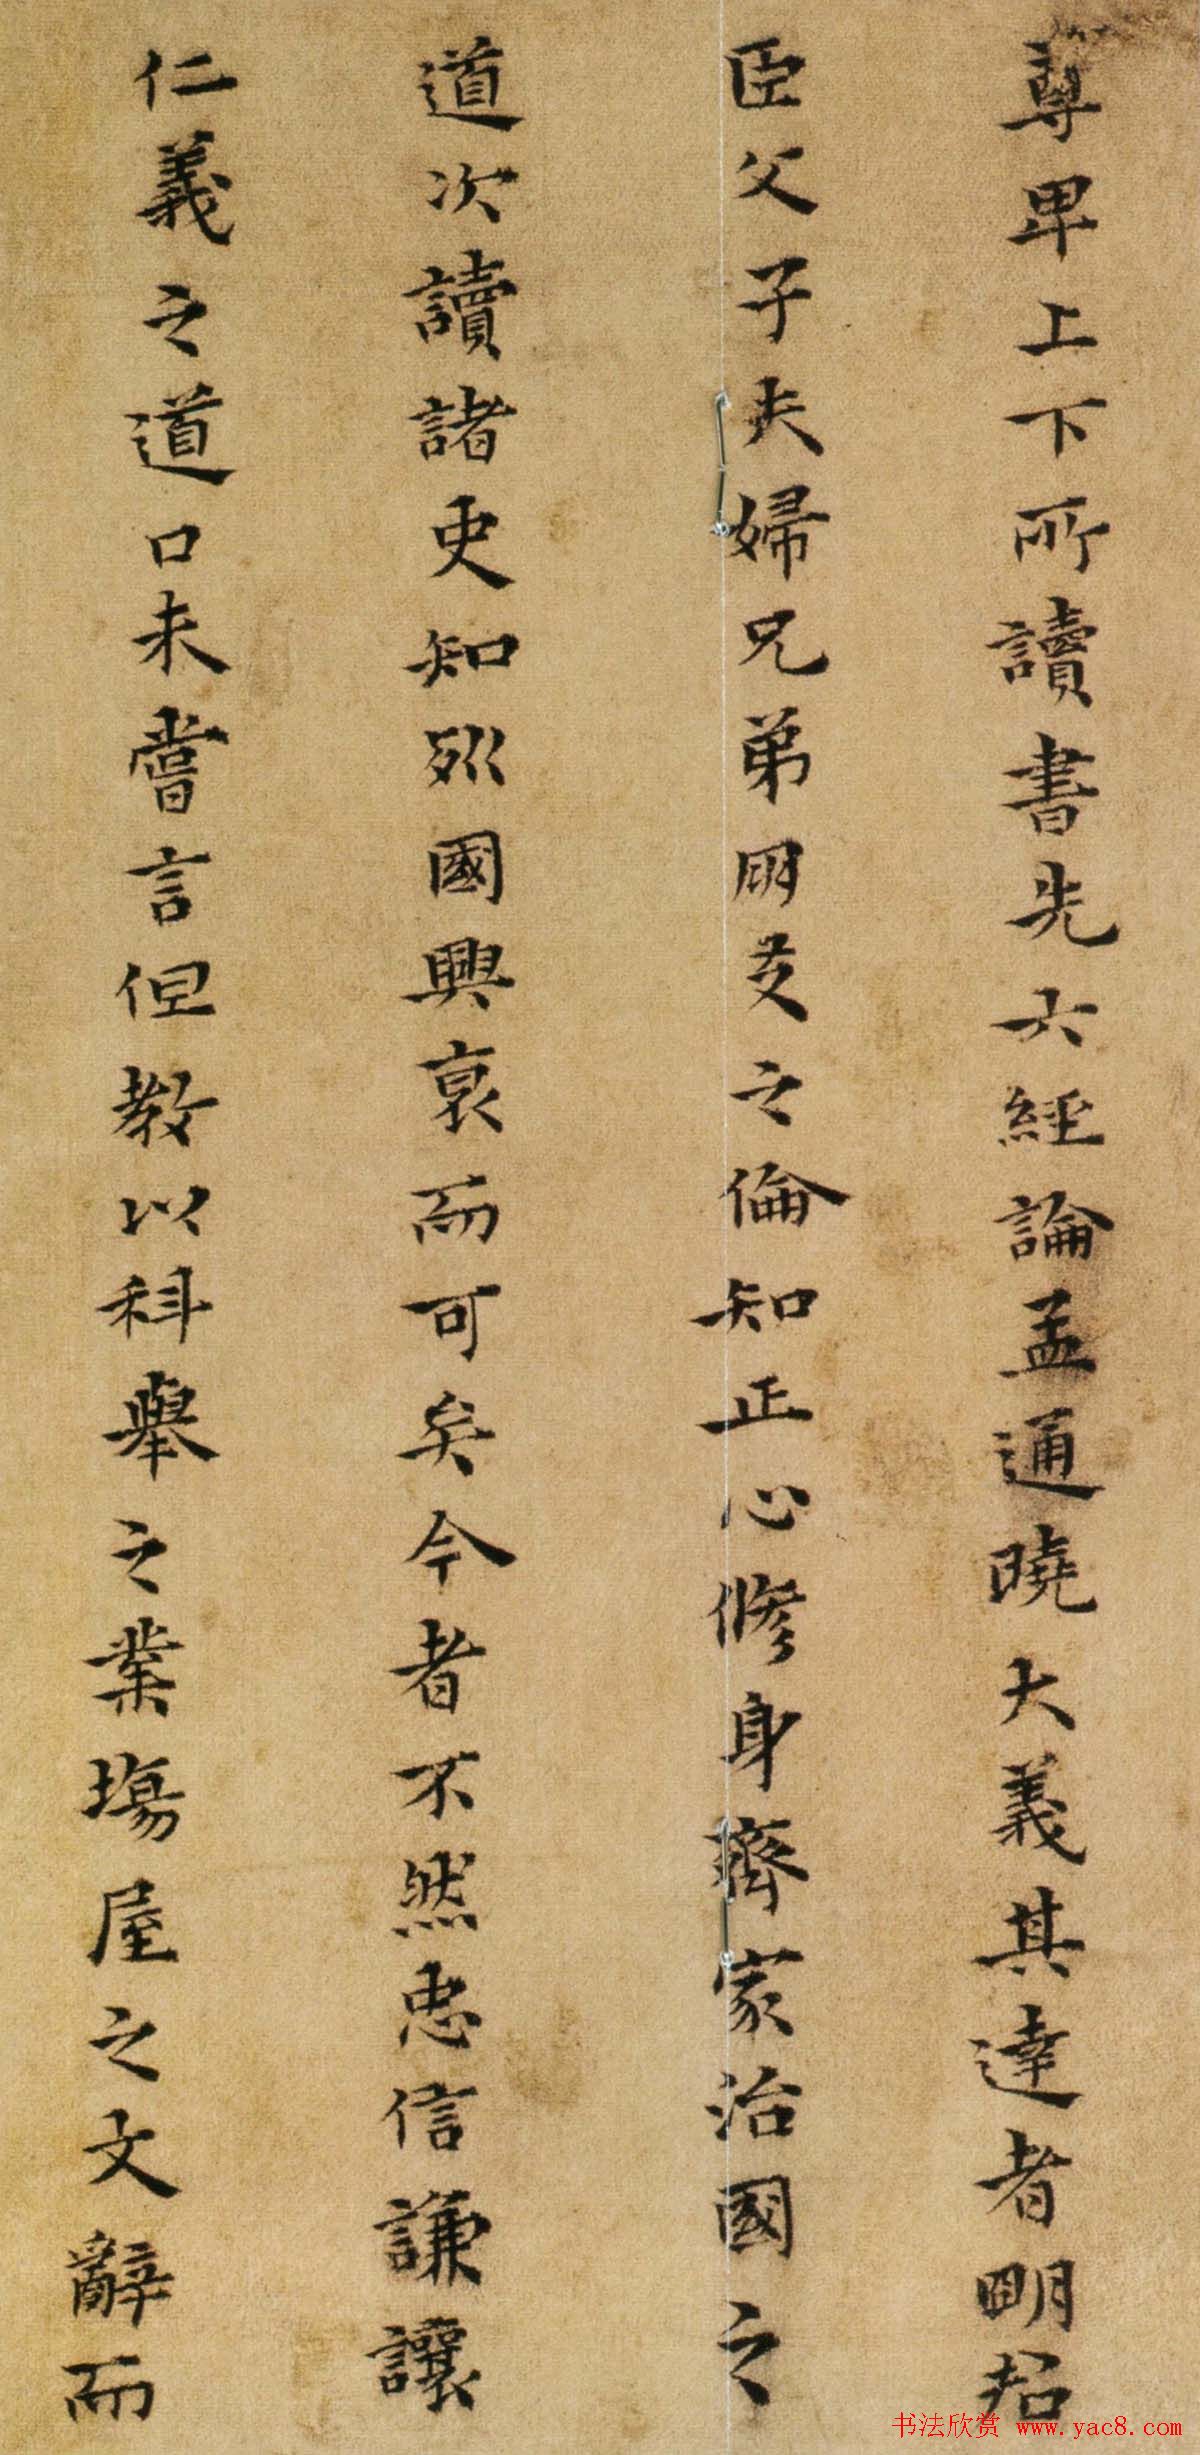 尊卑上下所讀書先六經論孟通曉大義其達者明君
臣父子夫婦兄弟朋友之倫知正心修身齊家治國之
道次讀諸史知列國興衰而可矣今者不然忠信謙讓
仁義之道口未嘗言但教以科舉之業場屋之文辭而
书法欣赏 www.yac8.com